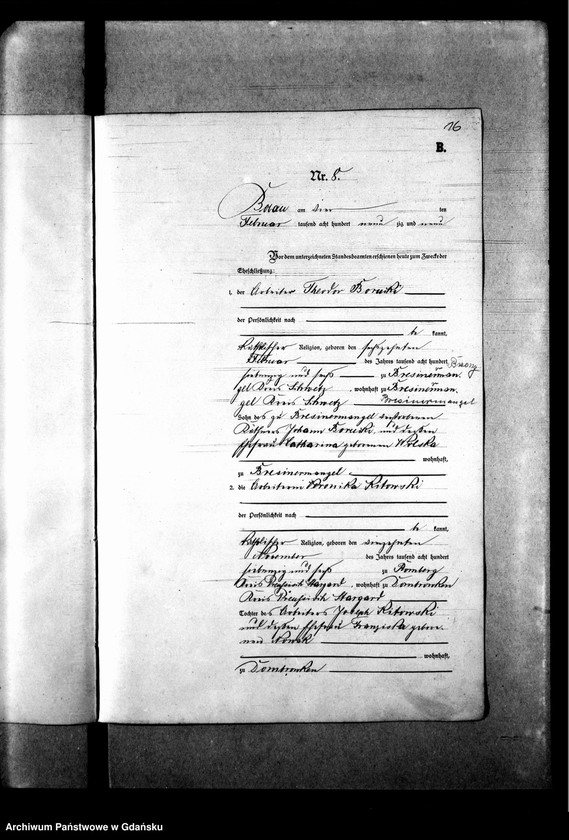 16
B.
Nr. 8.
Bosau am vier ten
Februar tausend acht hundert neun zig und neun
Vor dem unterzeichneten Standesbeamten erschienen heute zum Zwecke der
Eheschließung:
1. der Arbeiter Theodor Borucki
der Persönlichkeit nach
be kannt,
katholischer Religion, geboren den sechszehnten
Februar des Jahres tausend acht hundert
siebenzig und sechs zu Bresinerman
gel Kreis Schwetz, wohnhaft zu Bresinerman
gel Kreis Schwetz Bresinermangel
Sohn des zu Bresinermangel verstorbenen
Käthners Johann Borucki und dessen
Ehefrau Catharina geborenen Wolska
wohnhaft,
zu Bresinermangel
2. die Arbeiterin Veronika Kitowski
der Persönlichkeit nach
be kannt,
katholischer Religion, geboren den vierzehnten
November des Jahres tausend acht hundert
siebenzig und sechs zu Romberg
Kreis Preußisch Stargard, wohnhaft zu Dombrowken
Kreis Preußisch Stargard
Tochter des Arbeiters Joseph Kitowski
und dessen Ehefrau Franziska gebore
nen Nowak
wohnhaft,
zu Dombrowken
Archiwum Państwowe w Gdańsku